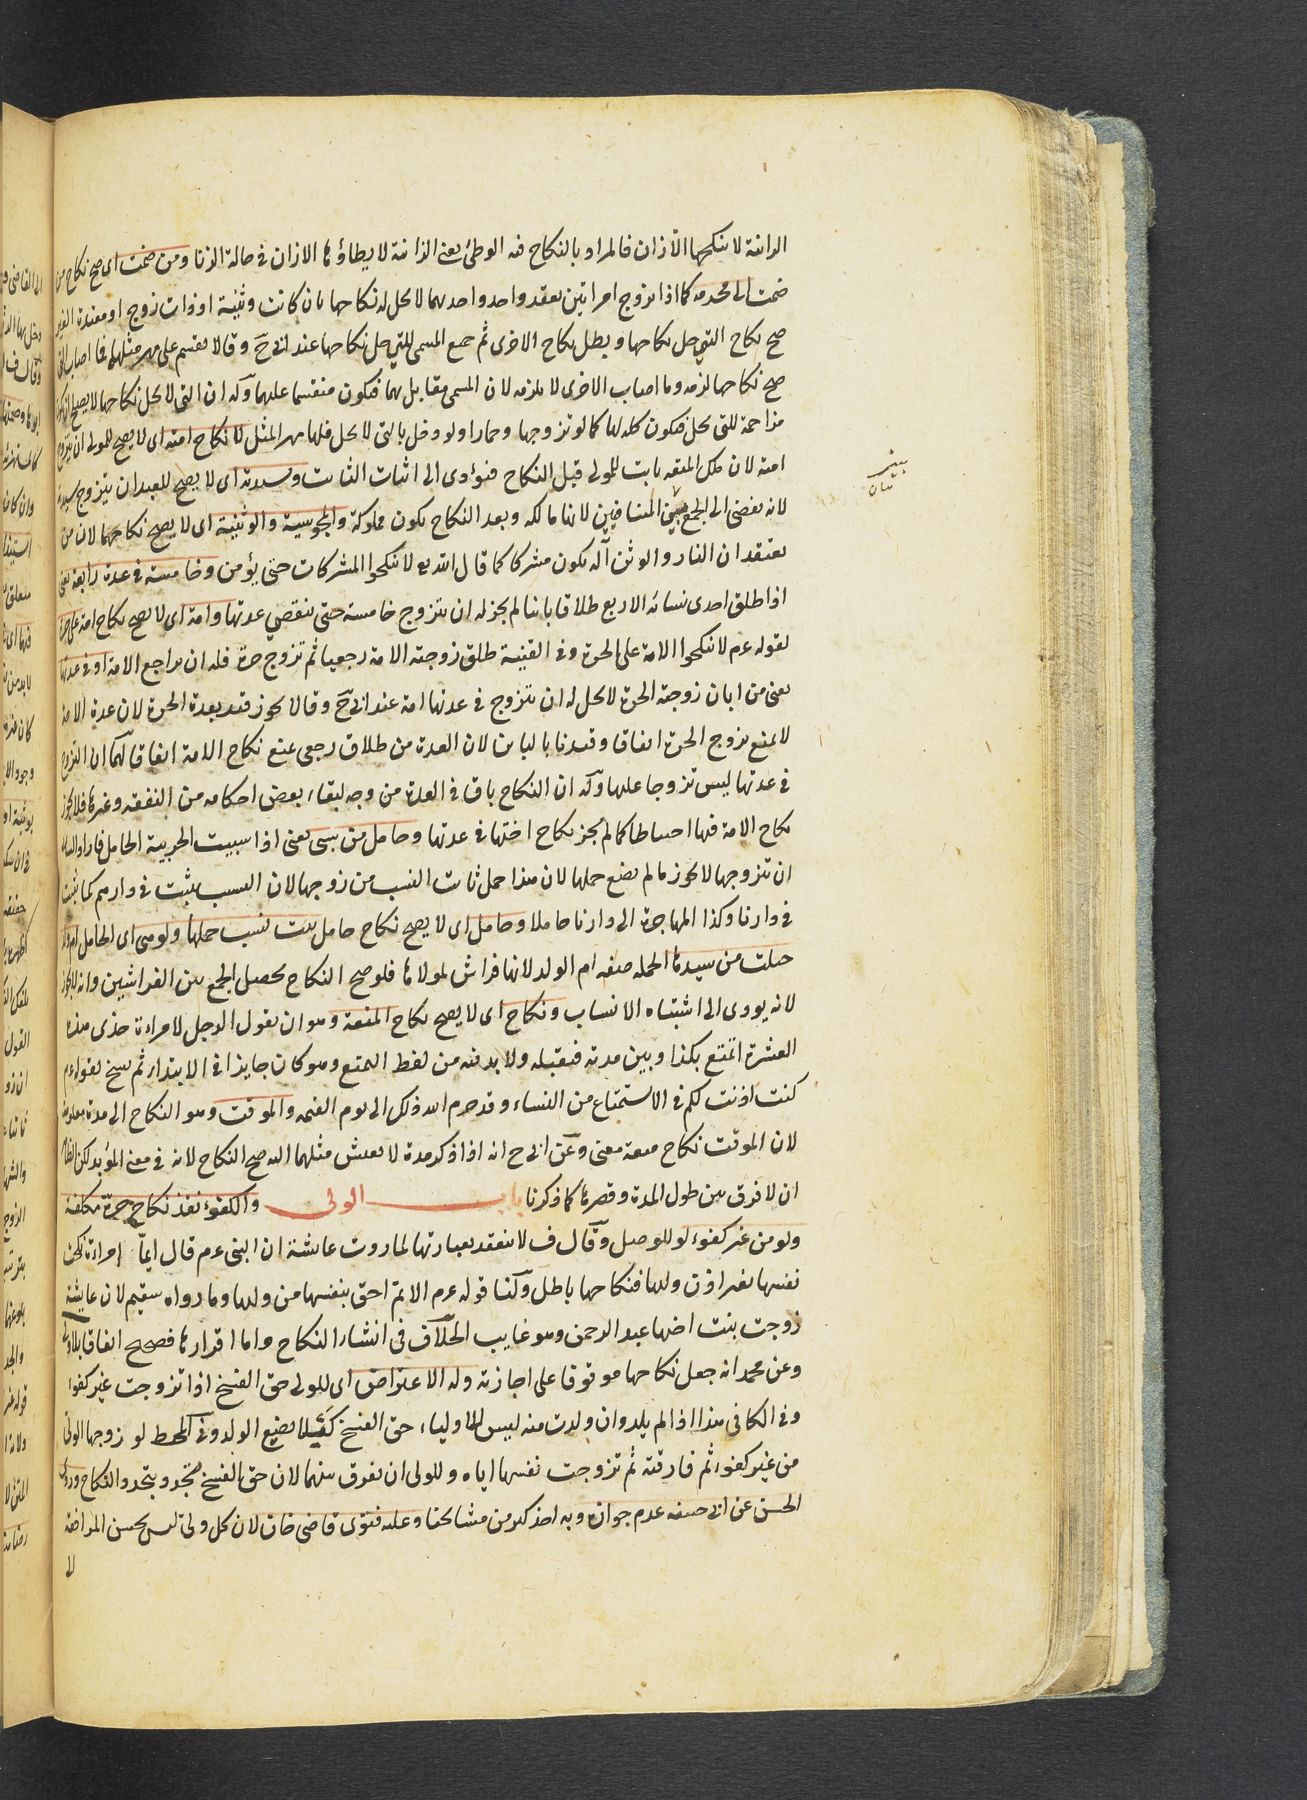 الزانية لا ينكحها الا زان فالمراد بالنكاح فيه الوطئ يعنى الزانية لا يطاؤها الا زان فى حالة الزنا ومن ضمت اى صح نكاح من
ضمت الى محرمه كما اذا تزوج امراتين بعقد واحد واحديهما لا يحل له نكاحها بان كانت وثنية او ذات زوج او معتدة الغير
صح نكاح التى حل نكاحها وبطل نكاح الاخرى ثم جميع المسمى للتى حل نكاحها عند ابى ح وقالا يقسم على مهر مثلهما فما اصاب التى
صح نكاحها لزمه وما اصاب الاخرى لا يلزمه لان المسمى مقابل بهما فيكون منقسما عليهما وله ان التى لا يحل نكاحها لا يصلح ان يكون
مزاحمة للتى يحل فيكون كله لها كما لو تزوجها وحمارا ولو دخل بالتى لا يحل فلها مهر المثل لا نكاح امته اى لا يصح للمولى ان يتزوج
امته لان ملك المتعة ثابت للمولى قبل النكاح فيؤدى الى اثبات الثابت وسيدته اى لا يصح للعبد ان يتزوج سيدته
لانه يفضى الى الجمع بين المتنافيين لانها مالكه وبعد النكاح يكون مملوكة والمجوسية والوثنية اى لا يصح نكاحهما لان من
يعتقد ان النار والوثن آله يكون مشركا كما قال الله تع لا تنكحوا المشركات حتى يؤمن وخامسة فى عدة رابعة يعنى
اذا طلق احدى نسائه الاربع طلاقا باينا لم يجز له ان يتزوج خامسة حتى تنقضى عدتها وامة اى لا يصح نكاح امة على حرة
لقوله عم لا تنكحوا الامة على الحرة وفى القنية طلق زوجته الامة رجعيا ثم تزوج حرة فله ان يراجع الامة او فى عدتها
يعنى من ابان زوجته الحرة لا يحل له ان يتزوج فى عدتها امة عند ابى ح وقالا يجوز قيد بعدة الحرة لان عدة الامة
لا يمنع تزوج الحرة اتفاقا وقيدنا بالباين لان العدة من طلاق رجعى يمنع نكاح الامة اتفاقا لهما ان التزوج
فى عدتها ليس تزوجا عليها وله ان النكاح باق فى العدة من وجه لبقاء بعض احكامه من النفقة وغيرها فلا يجوز
نكاح الامة فيها احتياطا كما لم يجز نكاح اختها فى عدتها وحامل من سبى يعنى اذا سبيت الحربية الحامل فاراد السابى
ان تزوجها لا يجوز ما لم يضع حملها لان هذا حمل ثابت النسب من زوجها لان النسب يثبت فى دارهم كما يثبت
فى دارنا وكذا المهاجرة الى دارنا حاملا وحامل اى لا يصح نكاح حامل يثبت نسب حملها ولو هى اى الحامل ام ولد
حملت من سيدها الجملة صفة ام الولد لانها فراش لمولاها فلو صح النكاح يحصل الجمع بين الفراشين وانه لا يجوز
لانه يودى الى اشتباه الانساب ونكاح اى لا يصح نكاح المتعة وهو ان يقول الرجل لامراءة خذى هذه
العشرة اتمتع بكذا وبين مدته فتقبله ولا بد فيه من لفظ التمتع وهو كان جايزا فى الابتداء ثم نسخ بقوله عم
كنت اذنت لكم فى الاستمتاع من النساء وقد حرم الله ذلك الى يوم القيمة والموقت وهو النكاح الى مدة معلومة
لان الموقت نكاح متعة معنى وعن ابى ح انه اذا ذكر مدة لا يعيش مثلهما اليه صح النكاح لانه فى معنى المؤبد لكن الظاهر
ان لا فرق بين طول المدة وقصرها كما ذكرنا باب الولى والكفوء نفذ نكاح حرة مكلفة
ولو من غير كفوء لو للوصل وقال ف لا ينعقد بعبارتها لما روت عايشة ان النبى عم قال ايما امراءة نكحت
نفسها بغير اذن وليها فنكاحها باطل ولنا قوله عم الايم احق بنفسها من وليها وما رواه سقيم لان عايشة
زوجت بنت اخيها عبد الرحمن وهو غايب الخلاف فى انشاء النكاح واما اقرارها فصحيح اتفاقا بلا ولى
وعن محمد انه جعل نكاحها موقوفا على اجازته وله الاعتراض اى للولى حق الفسخ اذا تزوجت غير كفوء
وفى الكافى هذا اذا لم يلد وان ولدت منه ليس للاولياء حق الفسخ كيلا يضيع الولد وفى المحيط لو زوجها الولى
من غير كفوء ثم فارقته ثم تزوجت نفسها اياه وللولى ان يفرق بينهما لان حق الفسخ يتجدد بتجدد النكاح وروى
الحسن عن ابى حنيفة عدم جوازه وبه اخذ كثير من مشايخنا وعليه فتوى قاضى خان لان كل ولى ليس يحسن المرافعة
لا